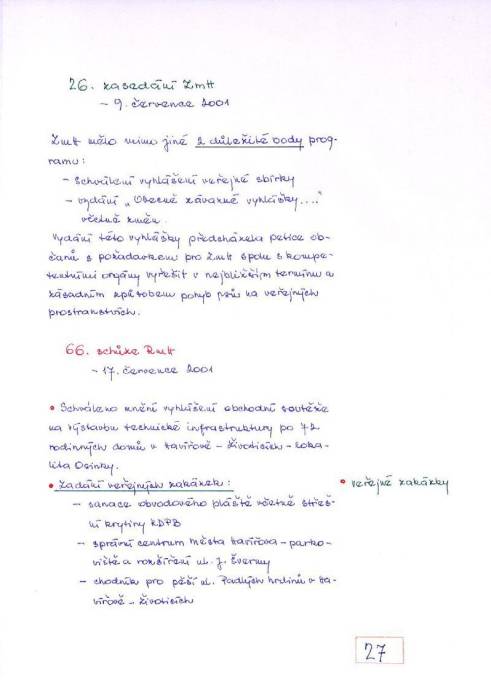 26. zasedání ZmH
– 9. července 2001
ZmH mělo mimo jiné 2 důležité body prog-
ramu:
– Schválení vyhlášení veřejné sbírky
– vydání „Obecně závazné vyhlášky...."
včetně změn.
Vydání této vyhlášky předcházela petice ob-
čanů s požadavkem pro ZmH spolu s kompe-
tentními orgány vyřešit v nejbližším termínu a
zásadním způsobem pohyb psů na veřejných
prostranstvích.
66. schůze RmH
– 17. července 2001
• Schváleno znění vyhlášení obchodní soutěže
na výstavbu technické infrastruktury po 72
rodinných domů v Havířově – Životicích – loka-
lita Osinky.
• Zadání veřejných zakázek:
• veřejné zakázky
– sanace obvodového pláště včetně střeš-
ní krytiny KDPB
– správní centrum města Havířova – parko-
viště a rozšíření ul. J. Švermy
– chodník pro pěší ul. Padlých hrdinů v Ha-
vířově – Životicích
27